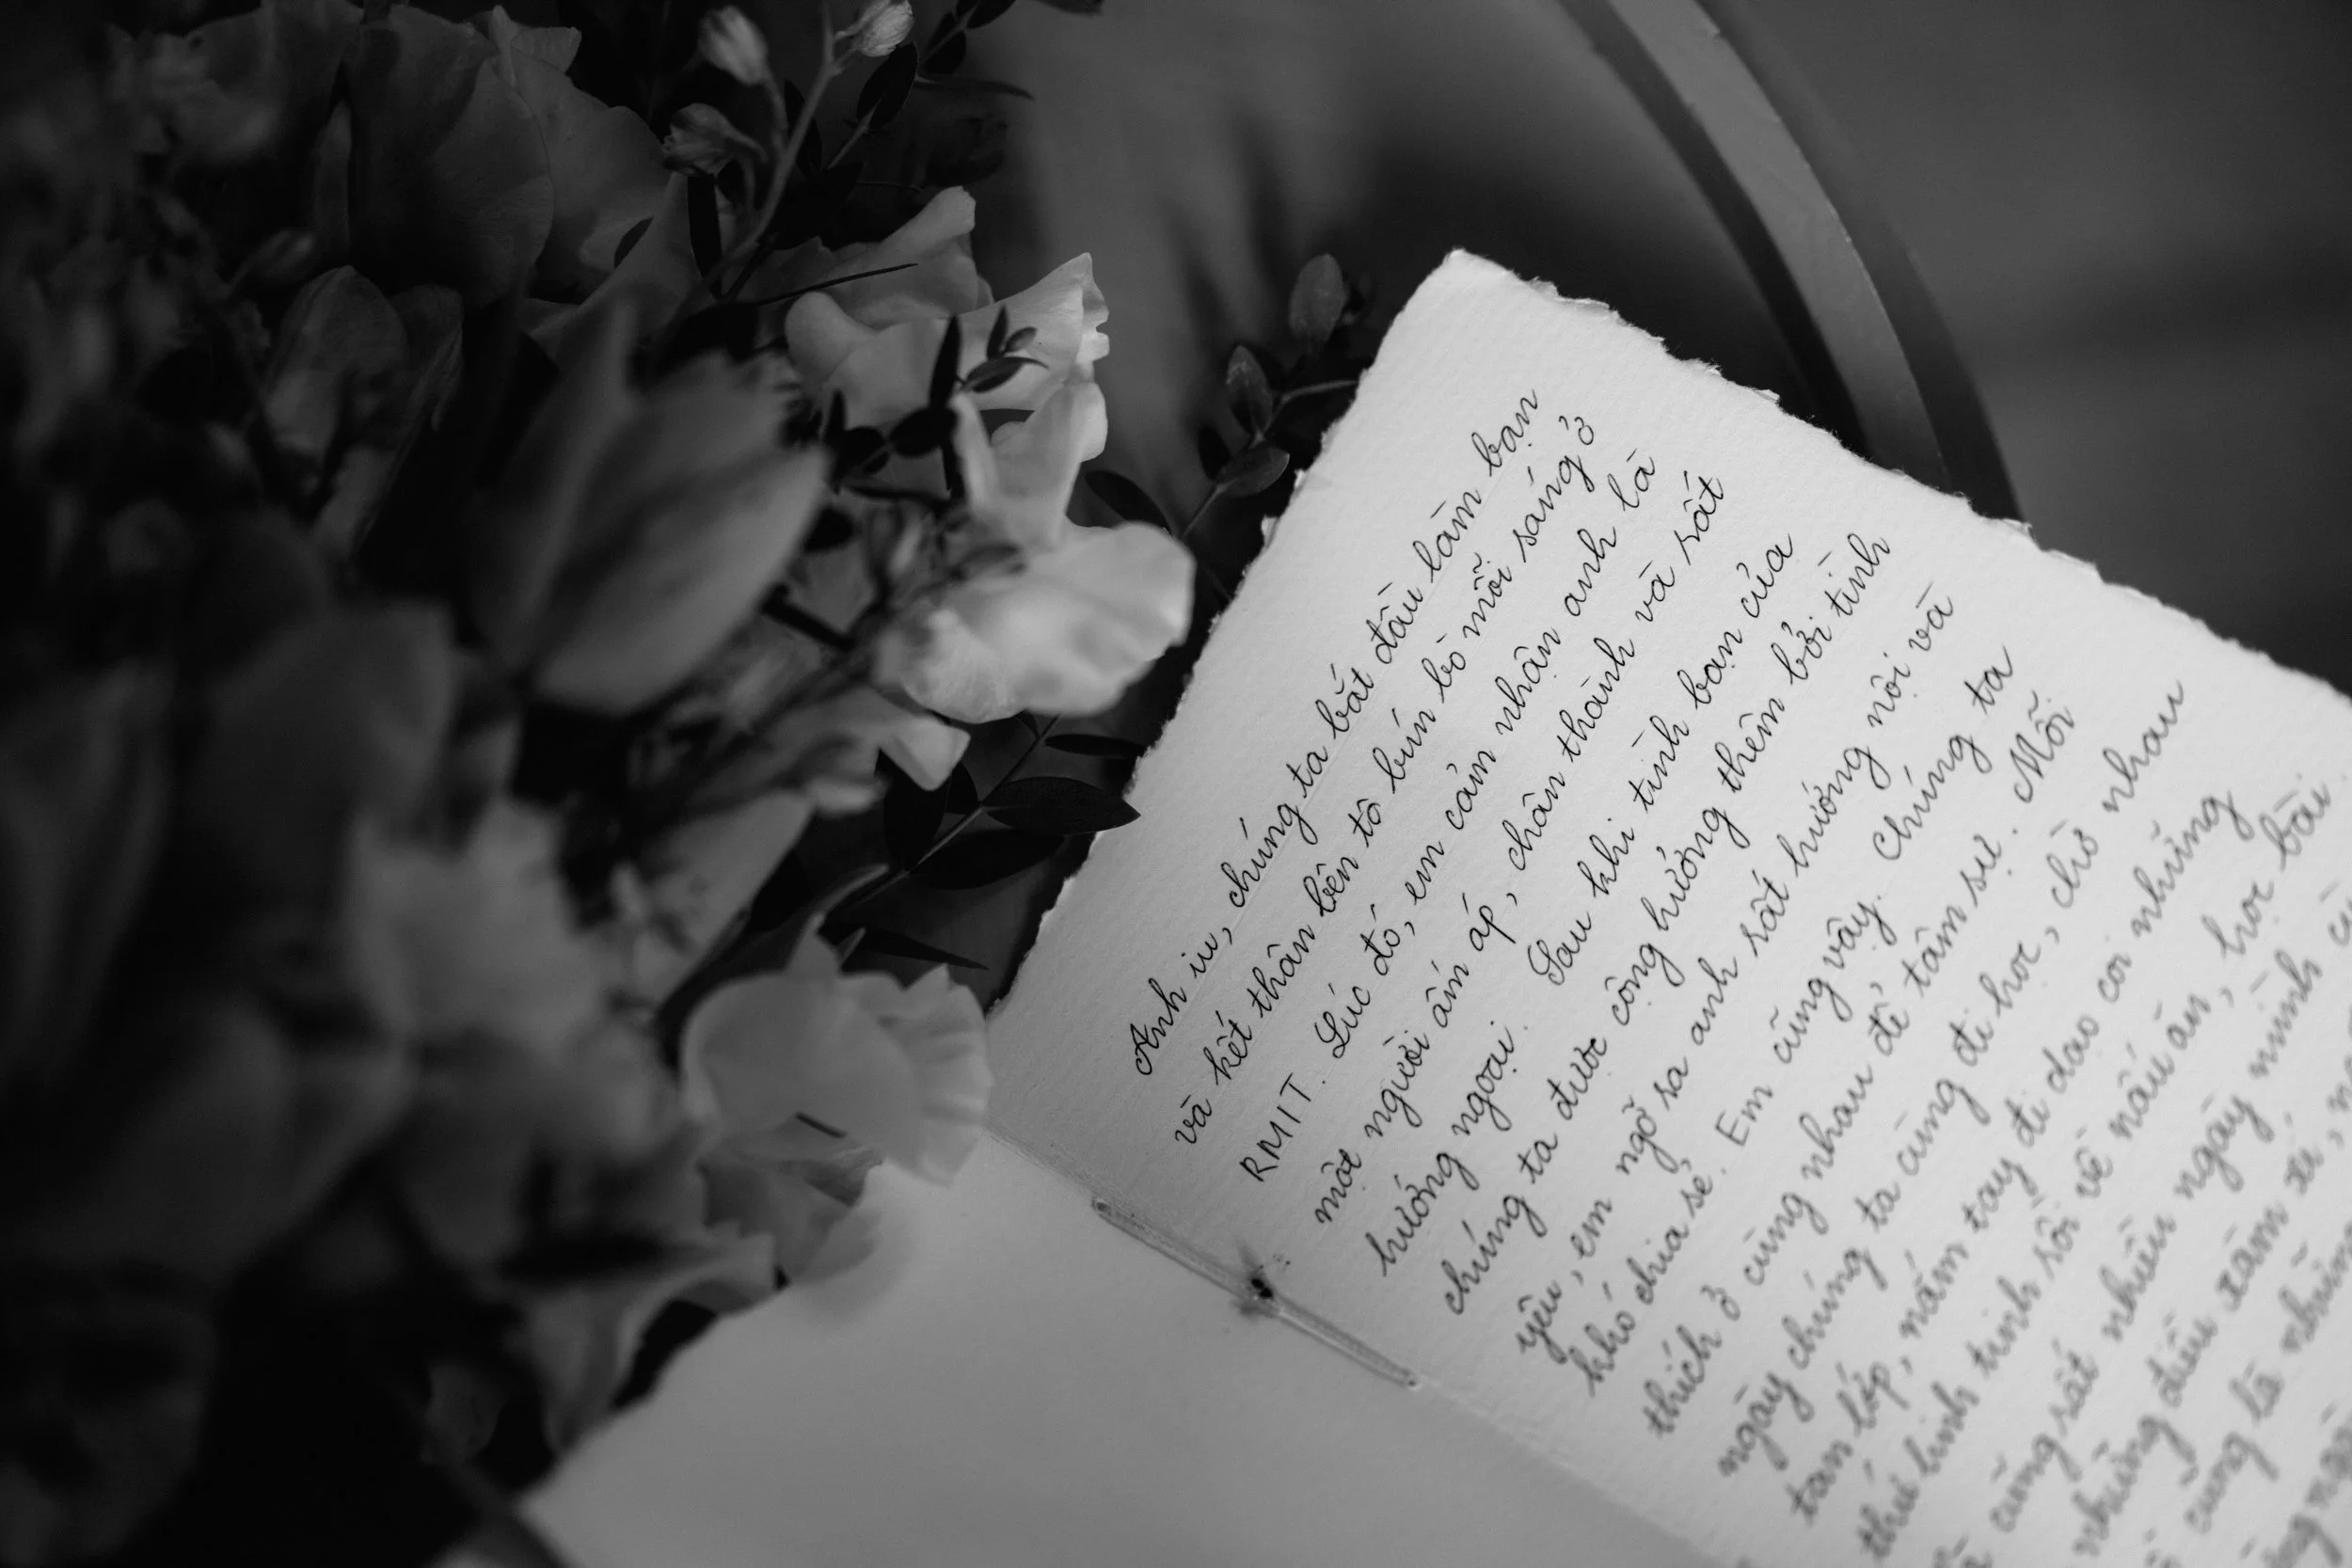 Anh iu, chúng ta bắt đầu làm bạn
và kết thân bên tô bún bò mỗi sáng ở
RMIT. Lúc đó, em cảm nhận anh là
một người ấm áp, chân thành và rất
hướng ngoại. Sau khi tình bạn của
chúng ta được cộng hưởng thêm bởi tình
yêu, em ngỡ ra anh rất hướng nội và
khó chia sẻ. Em cũng vậy. Chúng ta
thích ở cùng nhau để tâm sự. Mỗi
ngày chúng ta cùng đi học, chờ nhau
tan lớp, nắm tay đi dạo coi những
thứ linh tinh rồi về nấu ăn, học bài.
cũng rất nhiều ngày mình
những điều xàm xí,
cũng là